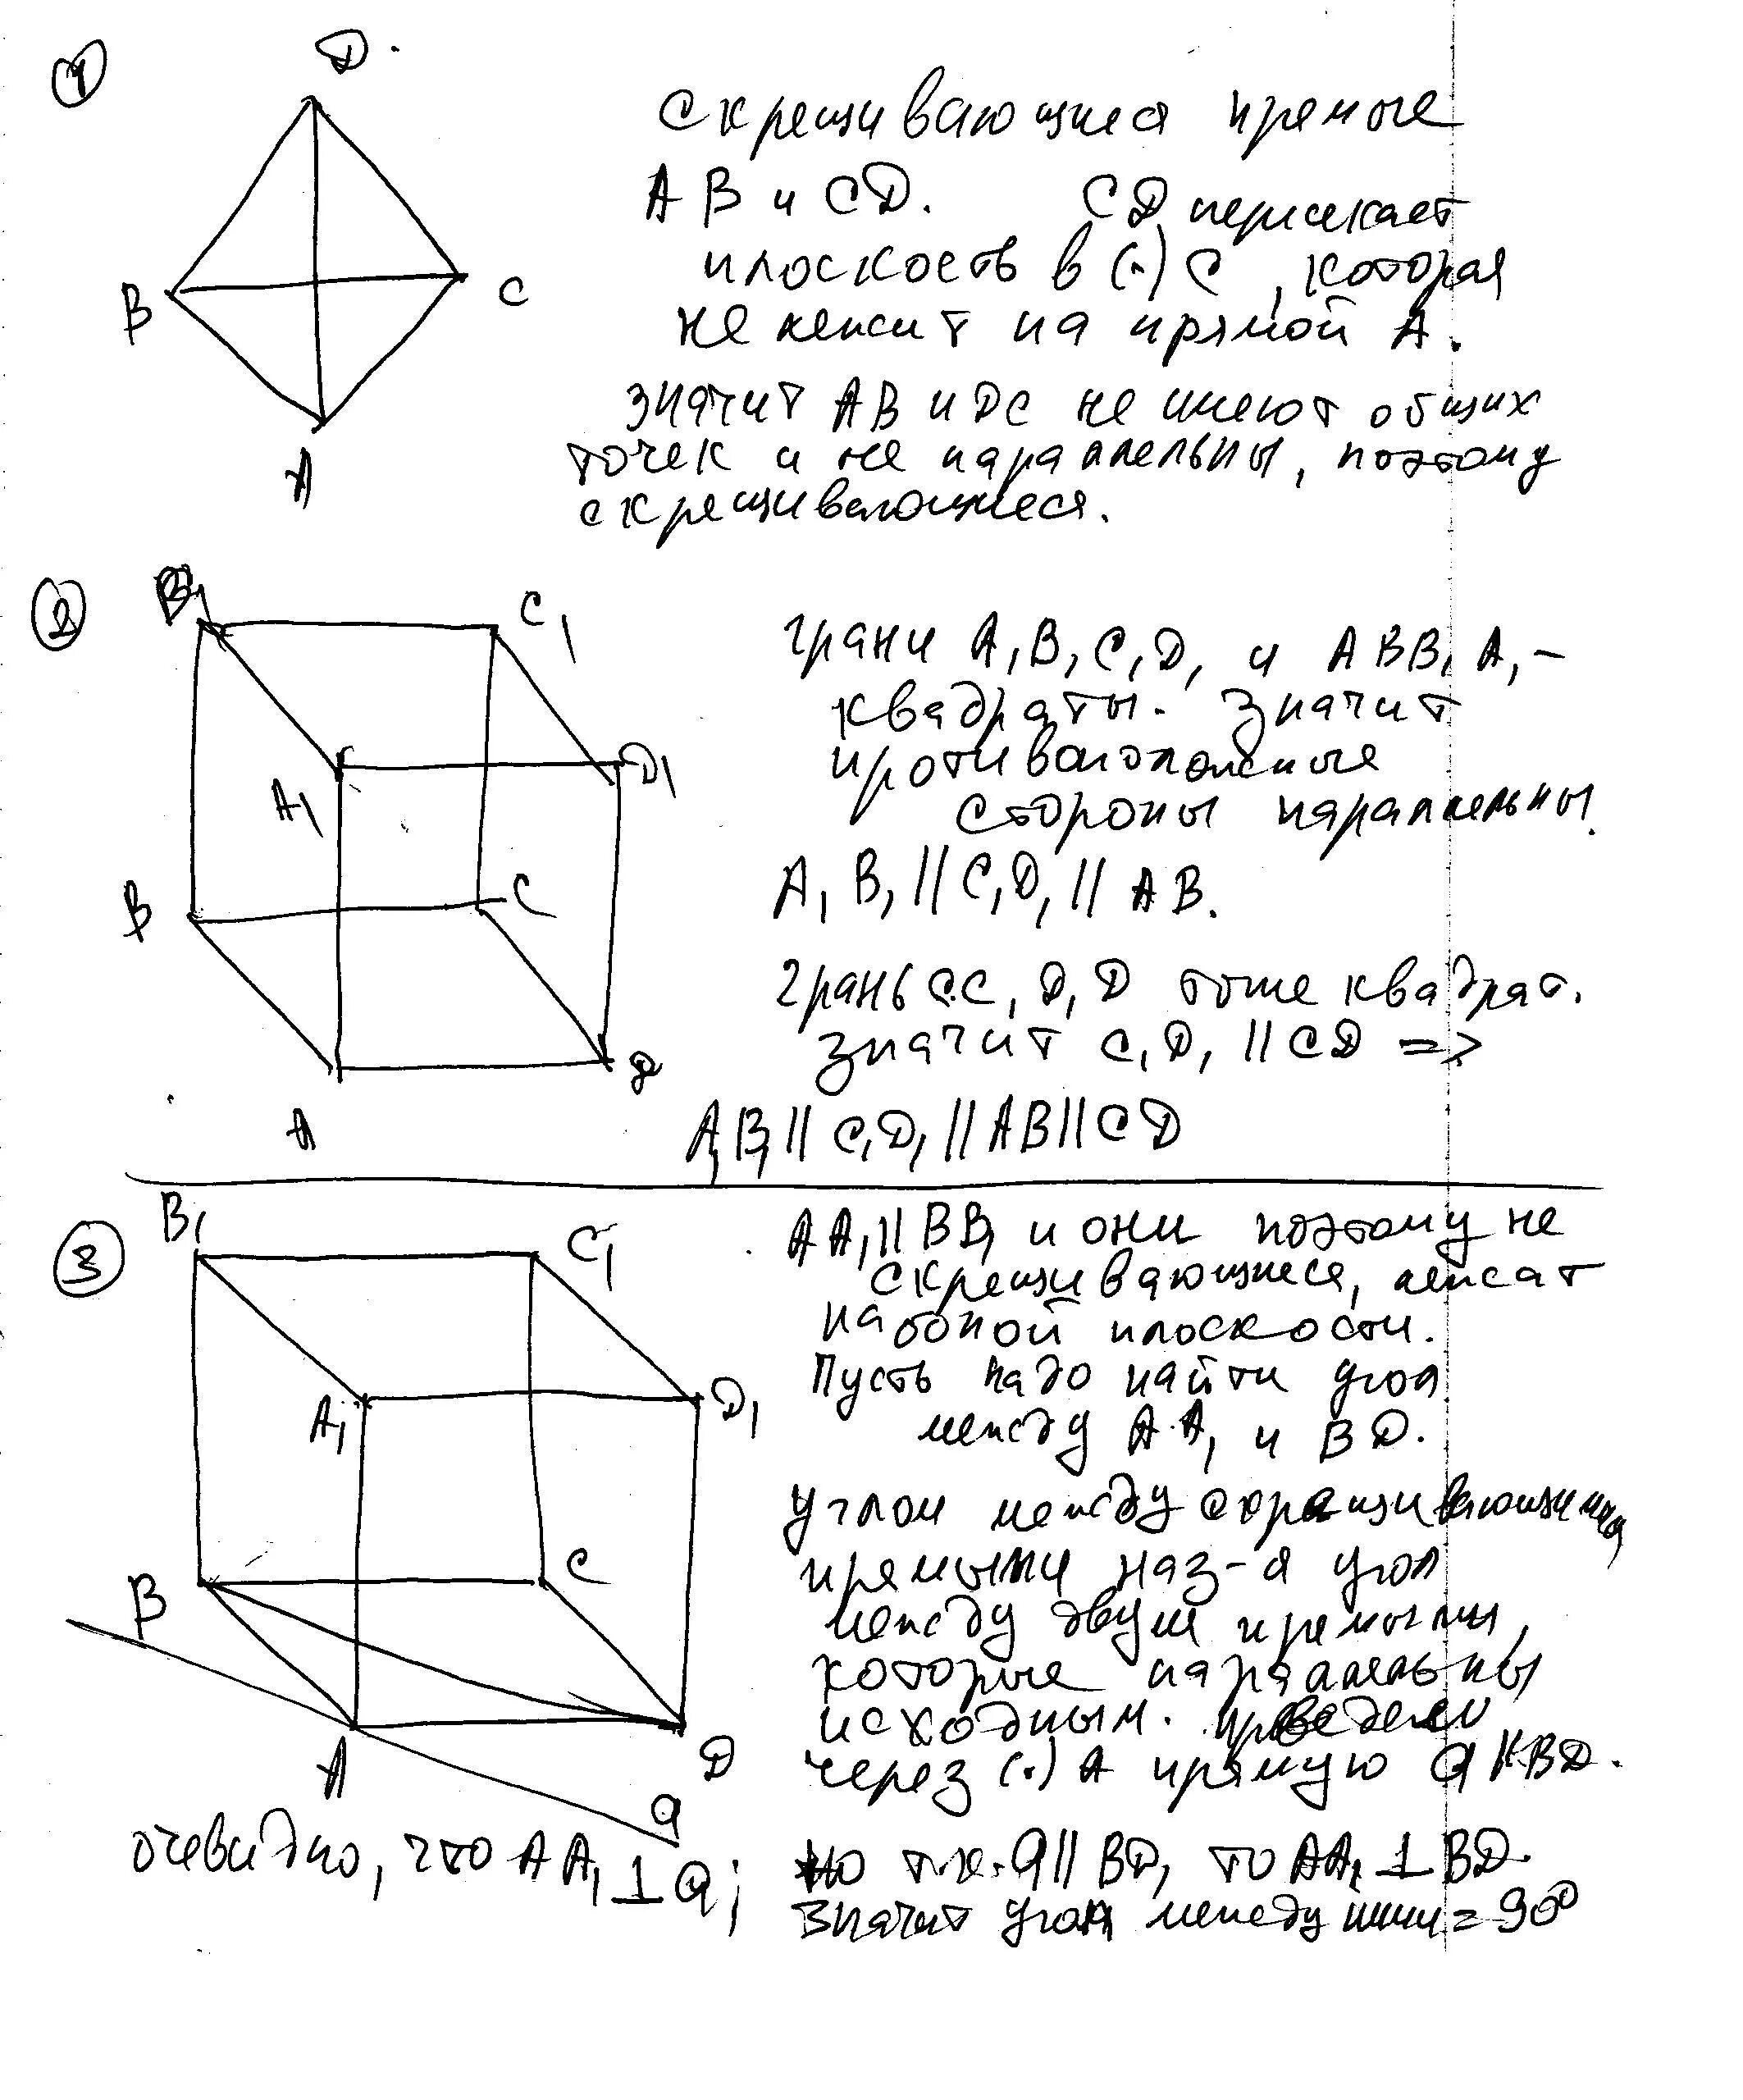 1
D.
B
C
A
Скрещивающиеся прямые
AB и CD. CD пересекает
плоскость в (·) C, которая
не лежит на прямой A.
значит AB и DC не имеют общих
точек и не параллельны, поэтому
скрещивающиеся.
2
B₁
C₁
A₁
D₁
B
C
A
D
грани A₁B₁C₁D₁ и ABB₁A₁ –
квадраты. Значит
противоположные
стороны параллельны.
A₁B₁ || C₁D₁ || AB.
грань CC₁D₁D тоже квадрат.
значит C₁D₁ || CD =>
A₁B₁ || C₁D₁ || AB || CD
3
B₁
C₁
A₁
D₁
B
C
A
D
a
AA₁ || BB₁ и они поэтому не
скрещивающиеся, лежат
на одной плоскости.
Пусть надо найти угол
между AA₁ и BD.
углом между скрещивающимися
прямыми наз-я угол
между двумя прямыми,
которые параллельны
исходным. проведем
через (·) A прямую a || BD.
очевидно, что AA₁ ⊥ a; но т.к. a || BD, то AA₁ ⊥ BD.
значит угол между ними = 90°